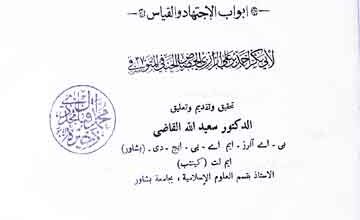 ابواب الإجتهاد والقياس
لأبي بكر احمد بن علي الرازي الجصاص الحنفي المتوفى
تحقيق وتقديم وتعليق
الدكتور سعيد الله القاضي
بی - اے آنرز - ایم اے - پی - ایچ - ڈی - (پشاور)
ایم لٹ (کینٹب)
الاستاذ بقسم العلوم الإسلامية، بجامعة بشاور